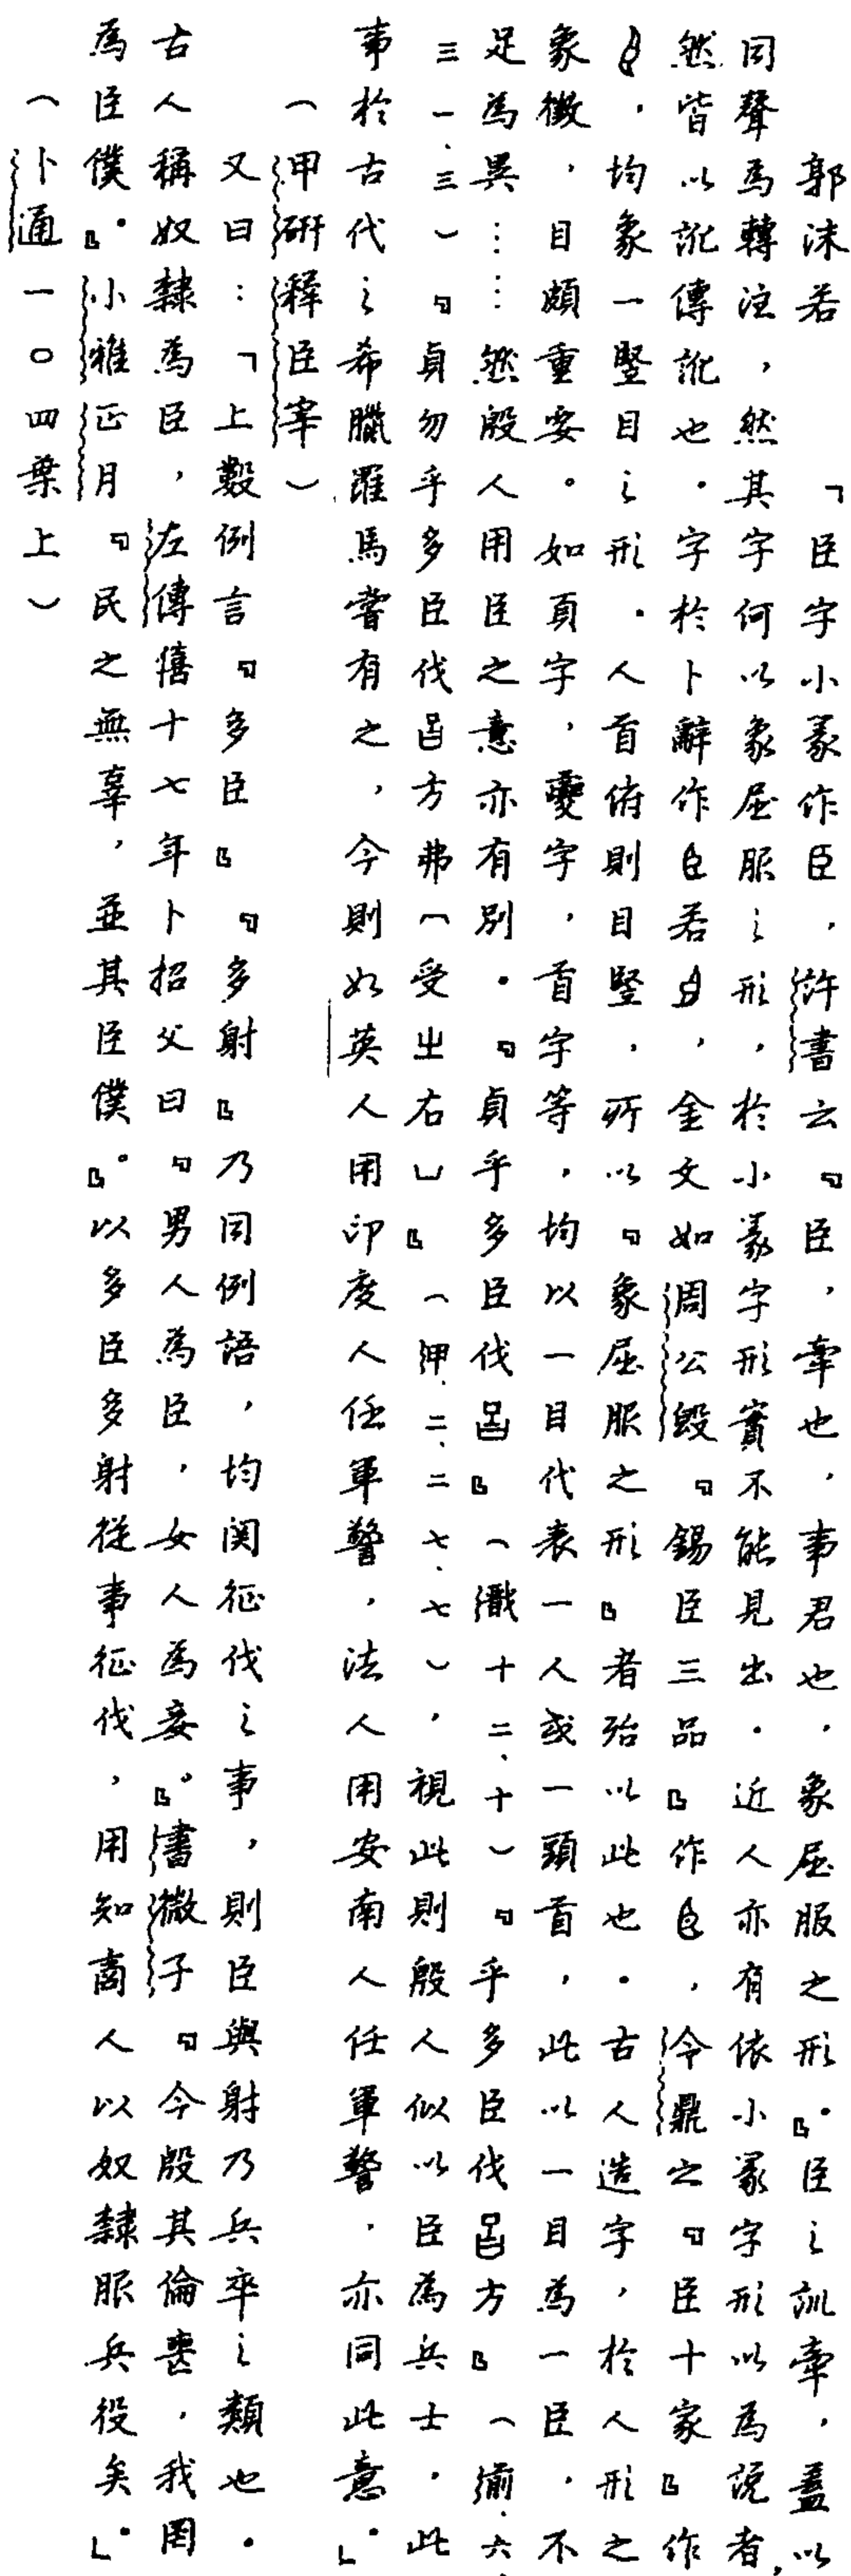 郭沫若　「臣字小篆作臣，許書云『臣，牽也，事君也，象屈服之形』。臣之訓牽，蓋以
同聲為轉注，然其字何以象屈服之形，於小篆字形實不能見出。近人亦有依小篆字形以為說者，
然皆以訛傳訛也。字於卜辭作若，金文如周公𣪘『錫臣三品』作，令鼎之『臣十家』作
，均象一豎目之形。人首俯則目豎，所以『象屈服之形』者殆以此也。古人造字，於人形之
象徵，目頗重要。如頁字，夒字，首字等，均以一目代表一人或一頭首，此以一目為一臣，不
足為異……然殷人用臣之意亦有別。『貞乎多臣伐𢀛』（戩十二、十）『乎多臣伐𢀛方』（前.六.
三一、三）『貞勿乎多臣伐𢀛方弗（受㞢右）』（甲.二、二七、七），視此則殷人似以臣為兵士，此
事於古代之希臘羅馬嘗有之，今則如英人用印度人任軍警，法人用安南人任軍警，亦同此意。」
（甲研釋臣宰）
又曰：「上數例言『多臣』『多射』乃同例語，均関征伐之事，則臣與射乃兵卒之類也。
古人稱奴隸為臣，左傳僖十七年卜招父曰『男人為臣，女人為妾』。書微子『今殷其倫喪，我罔
為臣僕』。小雅正月『民之無辜，並其臣僕』。以多臣多射從事征伐，用知商人以奴隸服兵役矣」。
（卜通一〇四葉上）